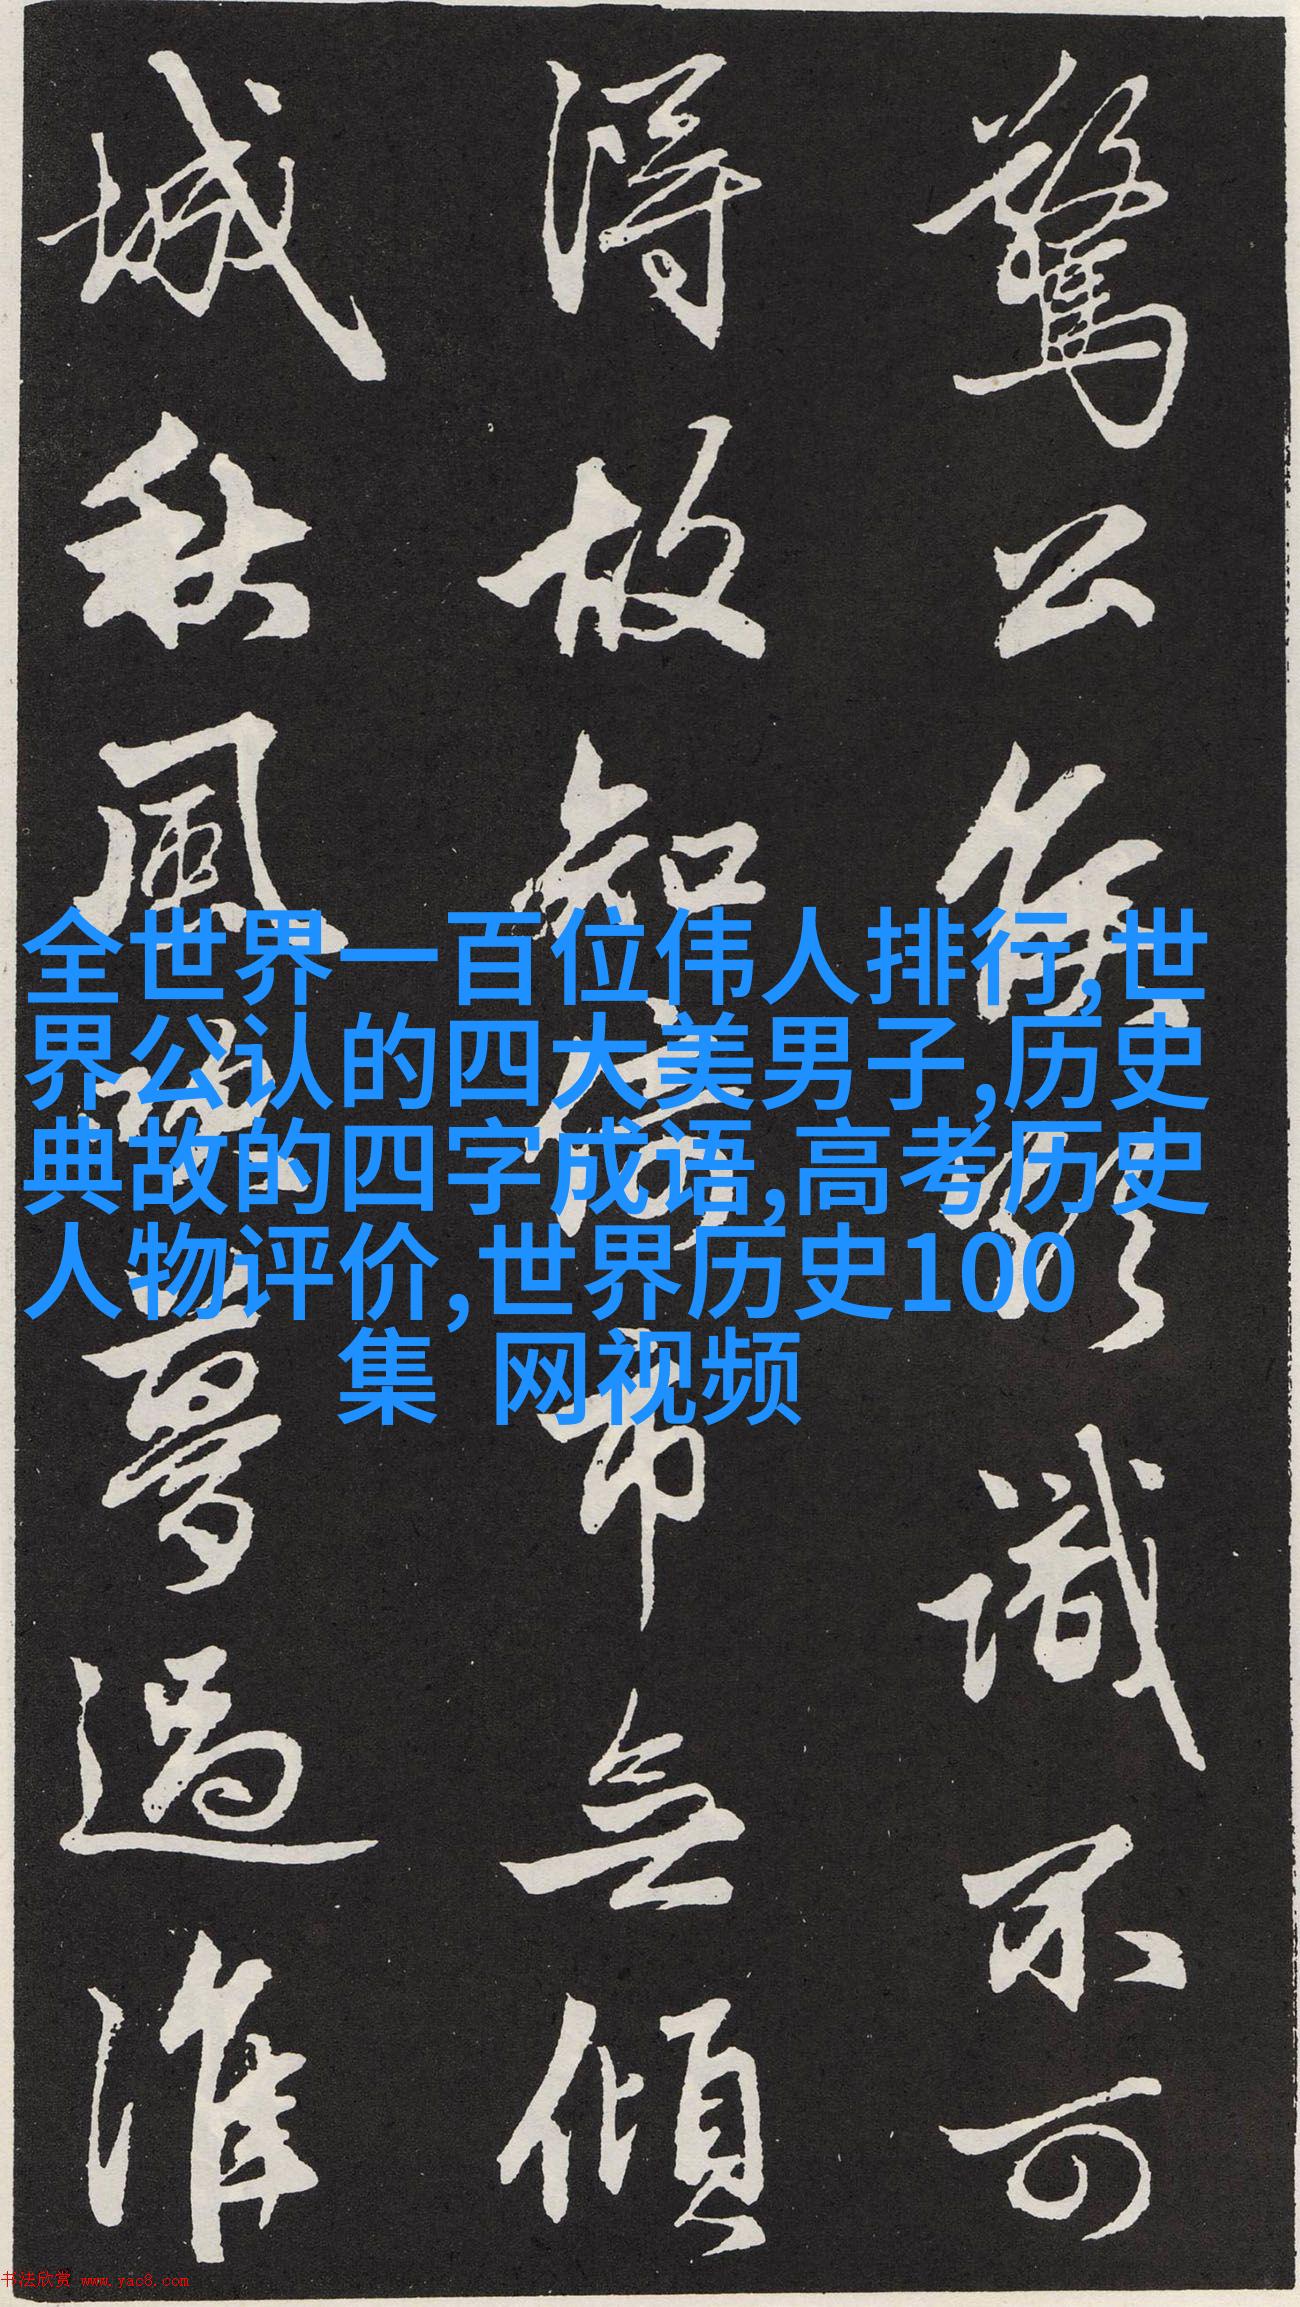 驚公識不可
得故知市無傾
城秋風夢過淮
全世界一百位伟人排行,世
界公认的四大美男子,历史
典故的四字成语,高考历史
人物评价,世界历史100
集 网视频
书法欣赏 www.yac8.com